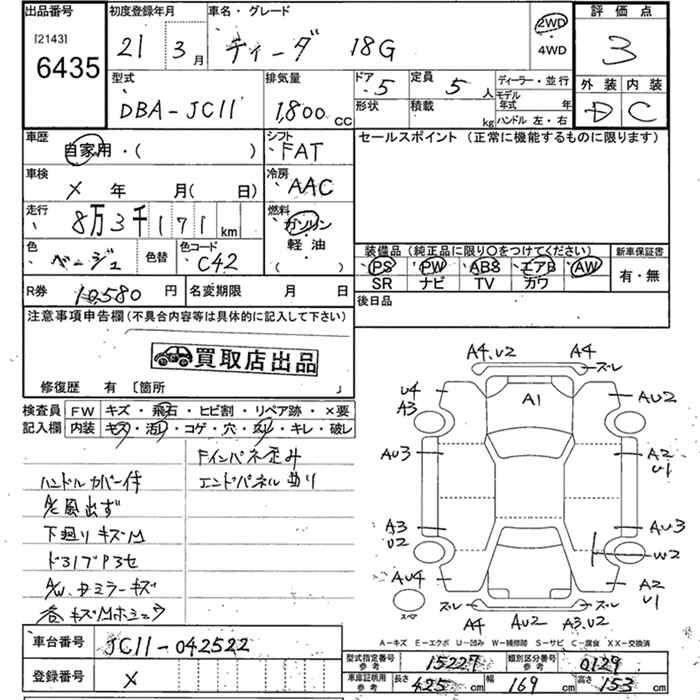 出品番号 初度登録年月 車名・グレード 2WD 評価点
[2143] 6435 21 3月 ティーダ 18G 4WD 3
型式 排気量 ドア 5 定員 5人 ディーラー・並行 外装 内装
DBA-JC11 1,800cc 形状 積載 kg モデル年式 年 D C
ハンドル 左・右
車歴 自家用・( ) シフト FAT セールスポイント (正常に機能するものに限ります)
車検 × 年 月( 日) 冷房 AAC
走行 8万3千171km 燃料 ガソリン 軽油 ( )
色 ベージュ 色替 色コード C42 装備品 (純正品に限り○をつけてください) 新車保証書
PS PW ABS エアB AW 有・無
SR ナビ TV カワ
R券 10,580円 名変期限 月 日 後日品
注意事項申告欄 (不具合内容等は具体的に記入して下さい)
買取店出品
修復歴 有 〔箇所 〕
検査員 FW キズ・飛石・ヒビ割・リペア跡・×要
記入欄 内装 キズ・汚れ・コゲ・穴・スリ・キレ・破レ
Fインパネ歪み
ハンドルカバー付 エンドパネル曲り
下廻りキズM
A/W、ドミラーキズ
A4、U2 A4
スレ
U4 A1 AU2
A3
AU3 A2
U1
A3 AU3
U2 W2
AU4 A2
U1
スペア
スレ スレ
A4 AU2 A3、U2
A-キズ E-エクボ U-凹み W-補修跡 S-サビ C-腐食 XX-交換済
車台番号 JC11-042522
型式指定番号 参考 15227 類別区分番号 参考 0129
登録番号 × 車庫証明用 参考 長さ 425cm 幅 169cm 高さ 153cm